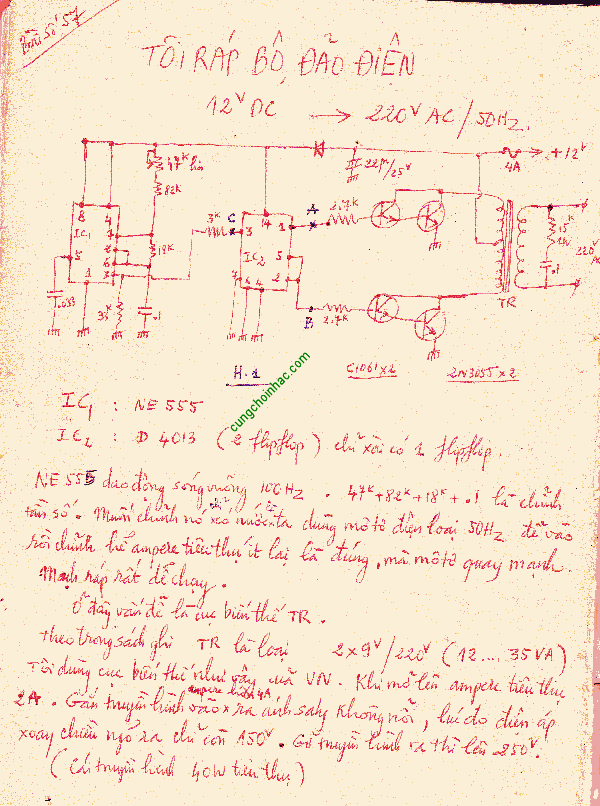 Bài số 57
TÔI RÁP BỘ ĐẢO ĐIỆN
12V DC → 220V AC/50Hz.
47K
82K
22µ/25V
4A
+12V
8 4
IC1
5
1
3
2
6
7
18K
.033
33K
.1
3K
C
3
14
1
IC2
5
2
7 6 4
A
2.7K
B
2.7K
TR
15K
1W
.1
220V
AC
H.1
C1061x2
2N3055x2
cungchoinhac.com
IC1 : NE 555
IC2 : D 4013 (2 flipflop) chỉ xài có 1 flipflop.
NE 555 dao động sóng vuông 100Hz. 47K+82K+18K+.1 là chỉnh
tần số. Muốn chỉnh nó ta dùng mô tơ điện loại 50Hz để vào
rồi chỉnh hể ampere tiêu thụ ít lại là đúng, mà mô tơ quay mạnh.
Mạch ráp rất dễ chạy.
Ở đây vấn đề là cục biến thế TR.
Theo trong sách ghi TR là loại 2x9V/220V (12....35VA)
Tôi dùng cục biến thế như vậy của VN. Khi mở lên ampere tiêu thụ
2A. Gắn truyền hình vào ampere 4A, ra ánh sáng không nỗi, lúc đó điện áp
xoay chiều ngỏ ra chỉ còn 150V. Gở truyền hình ra thì lên 250V.
(Cái truyền hình 40W tiêu thụ)